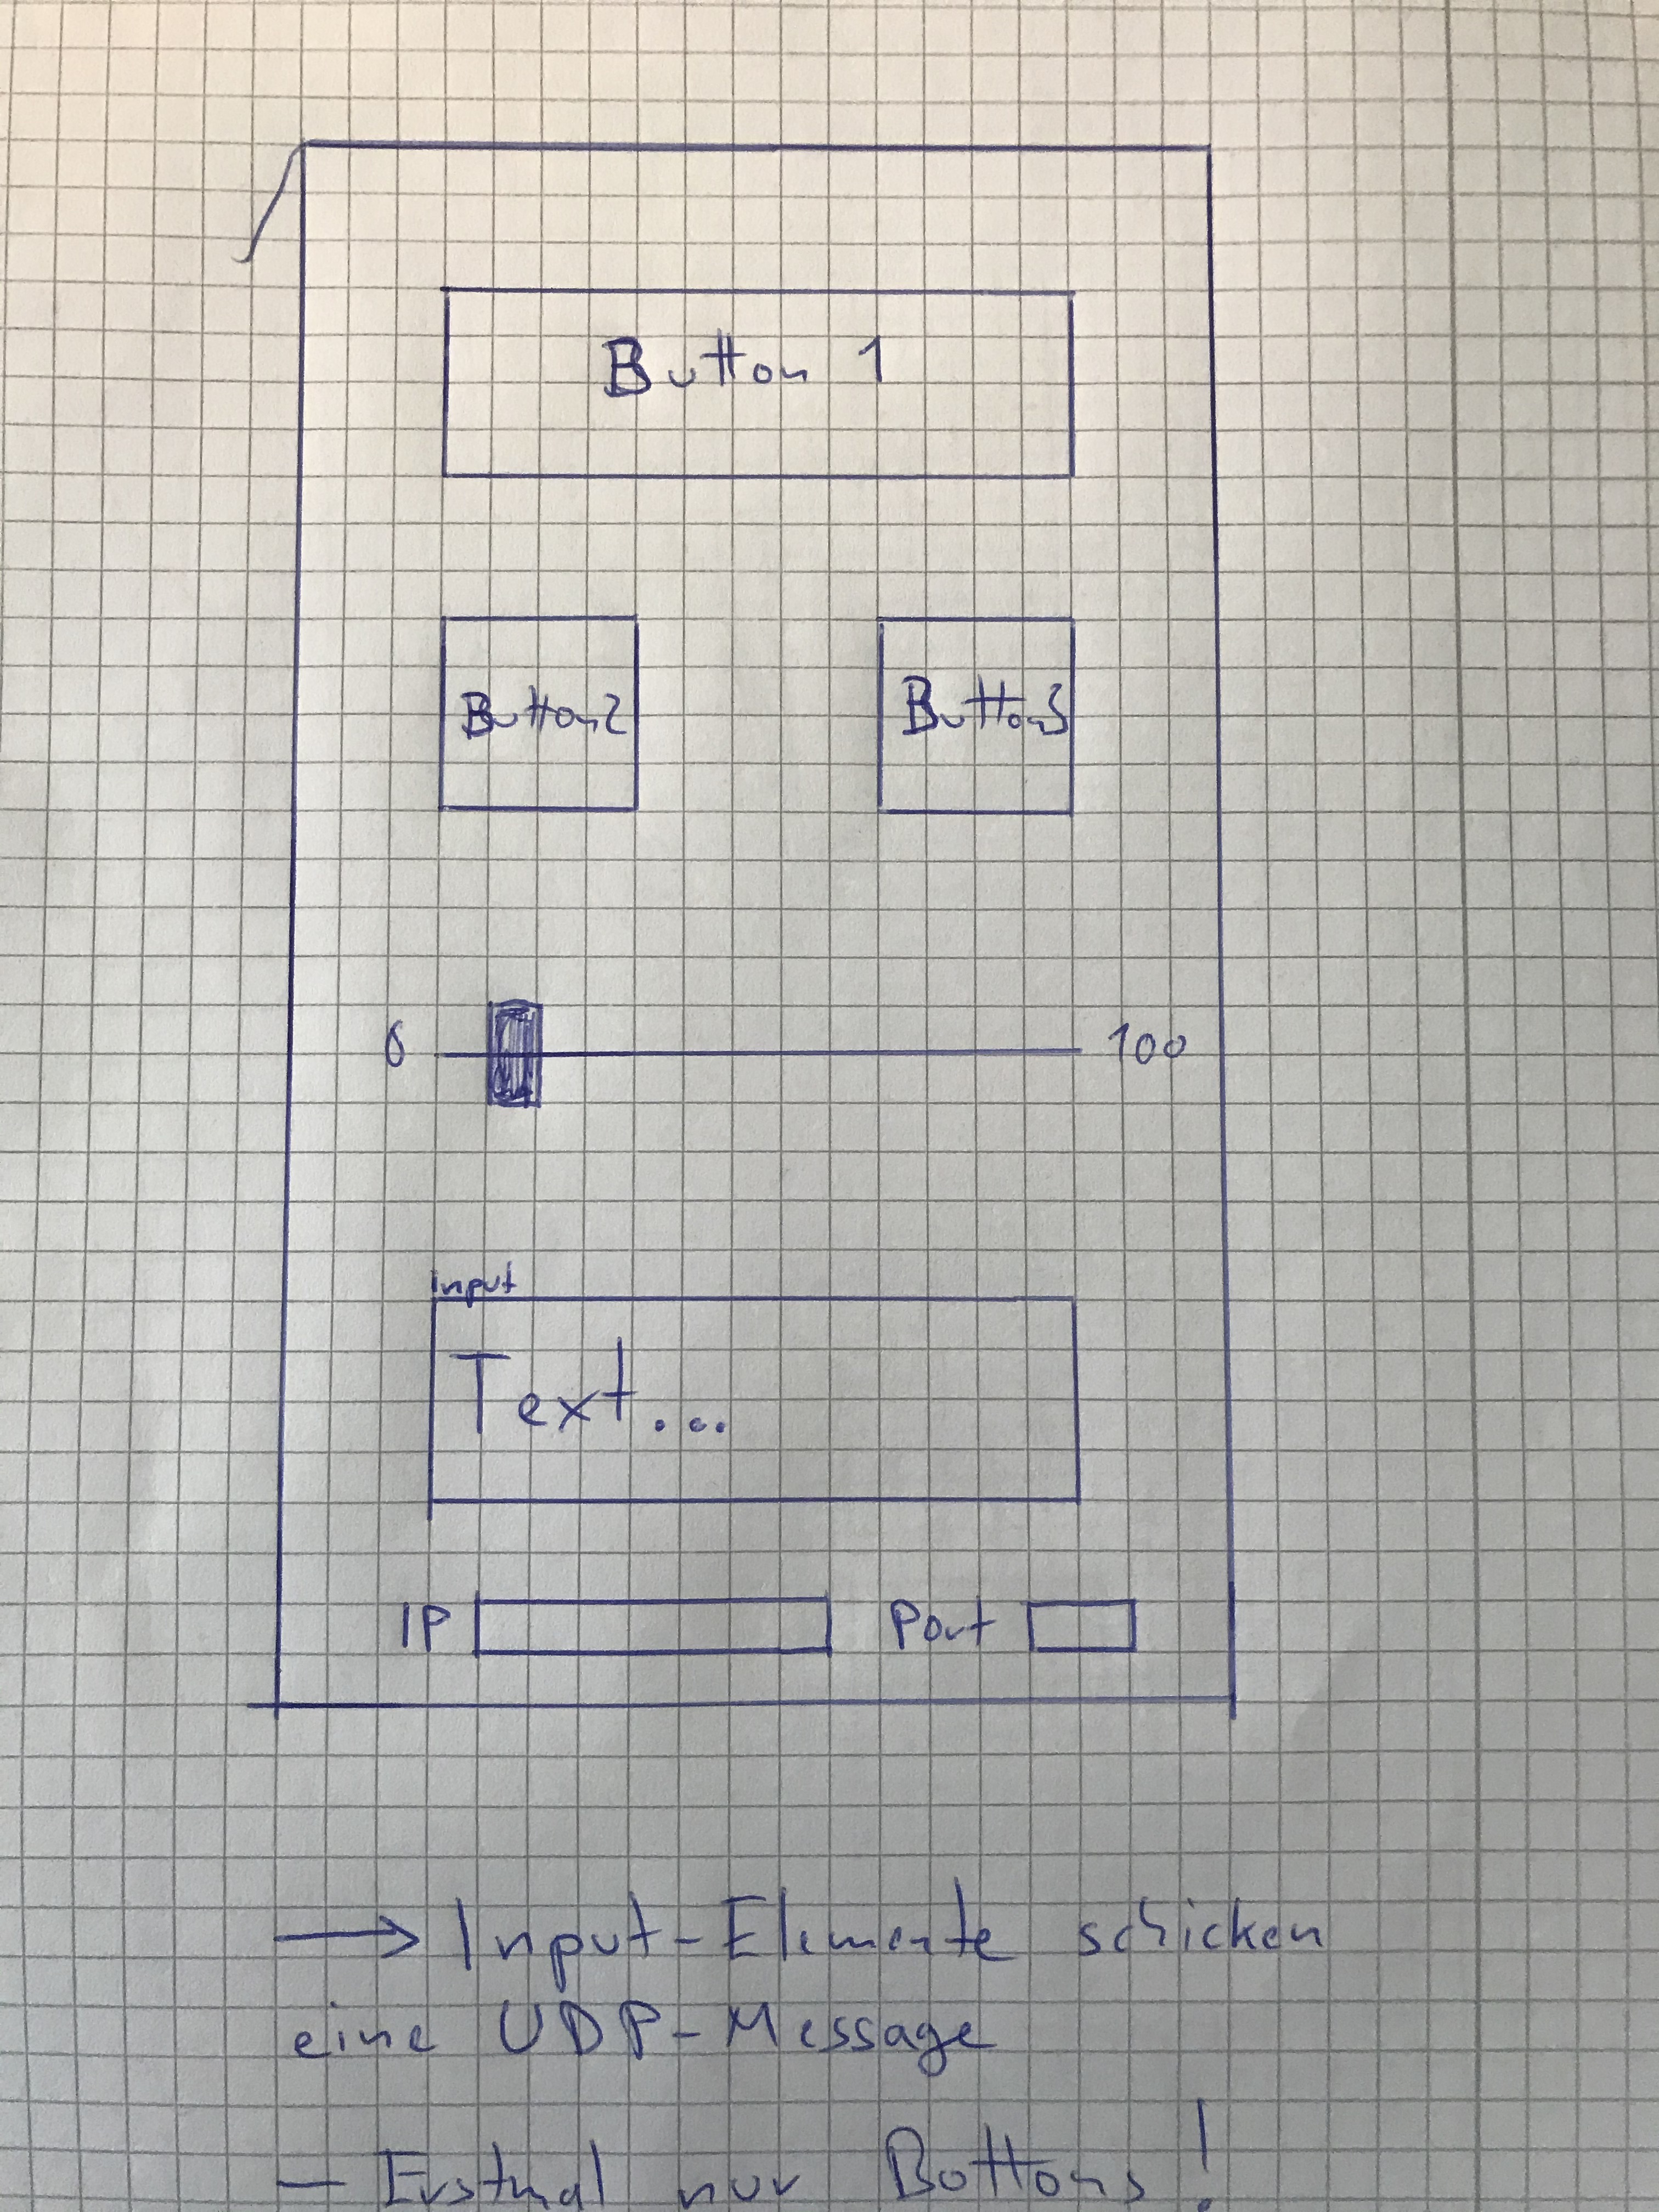 Button 1
Button2 Button3
0 100
Input
Text...
IP Port
→ Input-Elemente schicken
eine UDP-Message
– Erstmal nur Buttons!